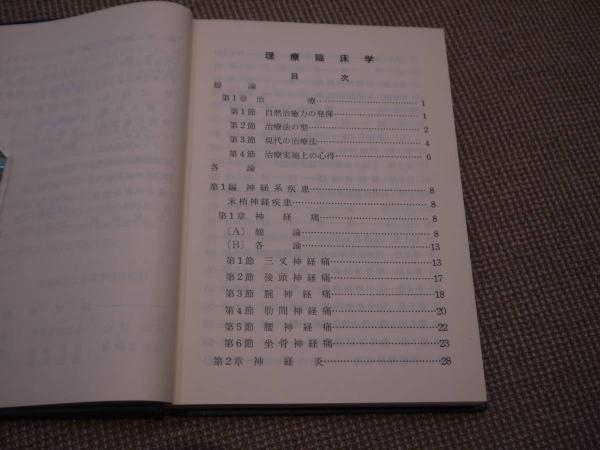 理療臨床学
目次
総論
第1章 治療……1
第1節 自然治癒力の発揮……1
第2節 治療法の型……2
第3節 現代の治療法……4
第4節 治療実施上の心得……6
各論
第1編 神経系疾患……8
末梢神経疾患……8
第1章 神経痛……8
〔A〕 総論……8
〔B〕 各論……13
第1節 三叉神経痛……13
第2節 後頭神経痛……17
第3節 腕神経痛……18
第4節 肋間神経痛……20
第5節 腰神経痛……22
第6節 坐骨神経痛……23
第2章 神経炎……28